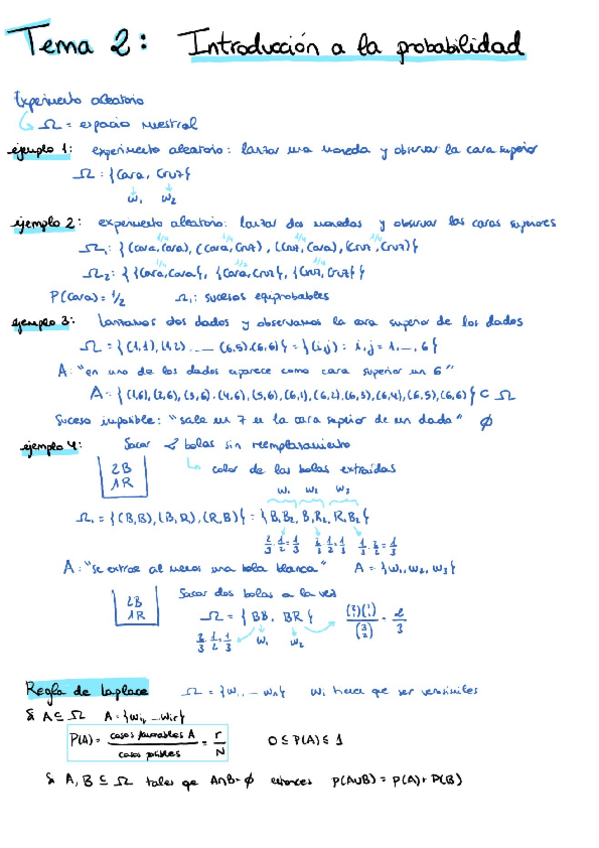 Tema 2: Introducción a la probabilidad
Experimento aleatorio
Ω = espacio muestral
ejemplo 1: experimento aleatorio: lanzar una moneda y observar la cara superior
Ω: {Cara, Cruz}
w₁ w₂
ejemplo 2: experimento aleatorio: lanzar dos monedas y observar las caras superiores
1/4 1/4 1/4 1/4
Ω₁: {(Cara, Cara), (Cara, Cruz), (Cruz, Cara), (Cruz, Cruz)}
1/4 1/2 1/4
Ω₂: {{Cara, Cara}, {Cara, Cruz}, {Cruz, Cruz}}
P(Cara) = 1/2 Ω₁: sucesos equiprobables
ejemplo 3: lanzamos dos dados y observamos la cara superior de los dados
Ω = {(1,1), (1,2) ... (6,5), (6,6)} = {(i,j): i,j = 1,...,6}
A: "en uno de los dados aparece como cara superior un 6"
A = {(1,6), (2,6), (3,6), (4,6), (5,6), (6,1), (6,2), (6,3), (6,4), (6,5), (6,6)} ⊂ Ω
Suceso imposible: "sale un 7 en la cara superior de un dado" ∅
ejemplo 4: Sacar 2 bolas sin reemplazamiento
2B
1R
color de las bolas extraídas
w₁ w₂ w₃
Ω₁ = {(B,B), (B,R), (R,B)} = {B₁B₂, B₁R₂, R₁B₂}
2/3 · 1/2 = 1/3 2/3 · 1/2 = 1/3 1/3 · 2/2 = 1/3
A: "se extrae al menos una bola blanca" A = {w₁, w₂, w₃}
2B
1R
Sacar dos bolas a la vez
Ω = {BB, BR}
2/3 · 1/2 = 1/3 w₁ w₂
= 2/3
Regla de Laplace Ω = {w₁ ... wₙ} wᵢ tiene que ser
Si A ⊆ Ω
P(A) = casos favorables A / casos posibles = r/N 0 ≤ P(A) ≤ 1
Si A, B ⊆ Ω tales que A∩B = ∅ entonces P(A∪B) = P(A) + P(B)